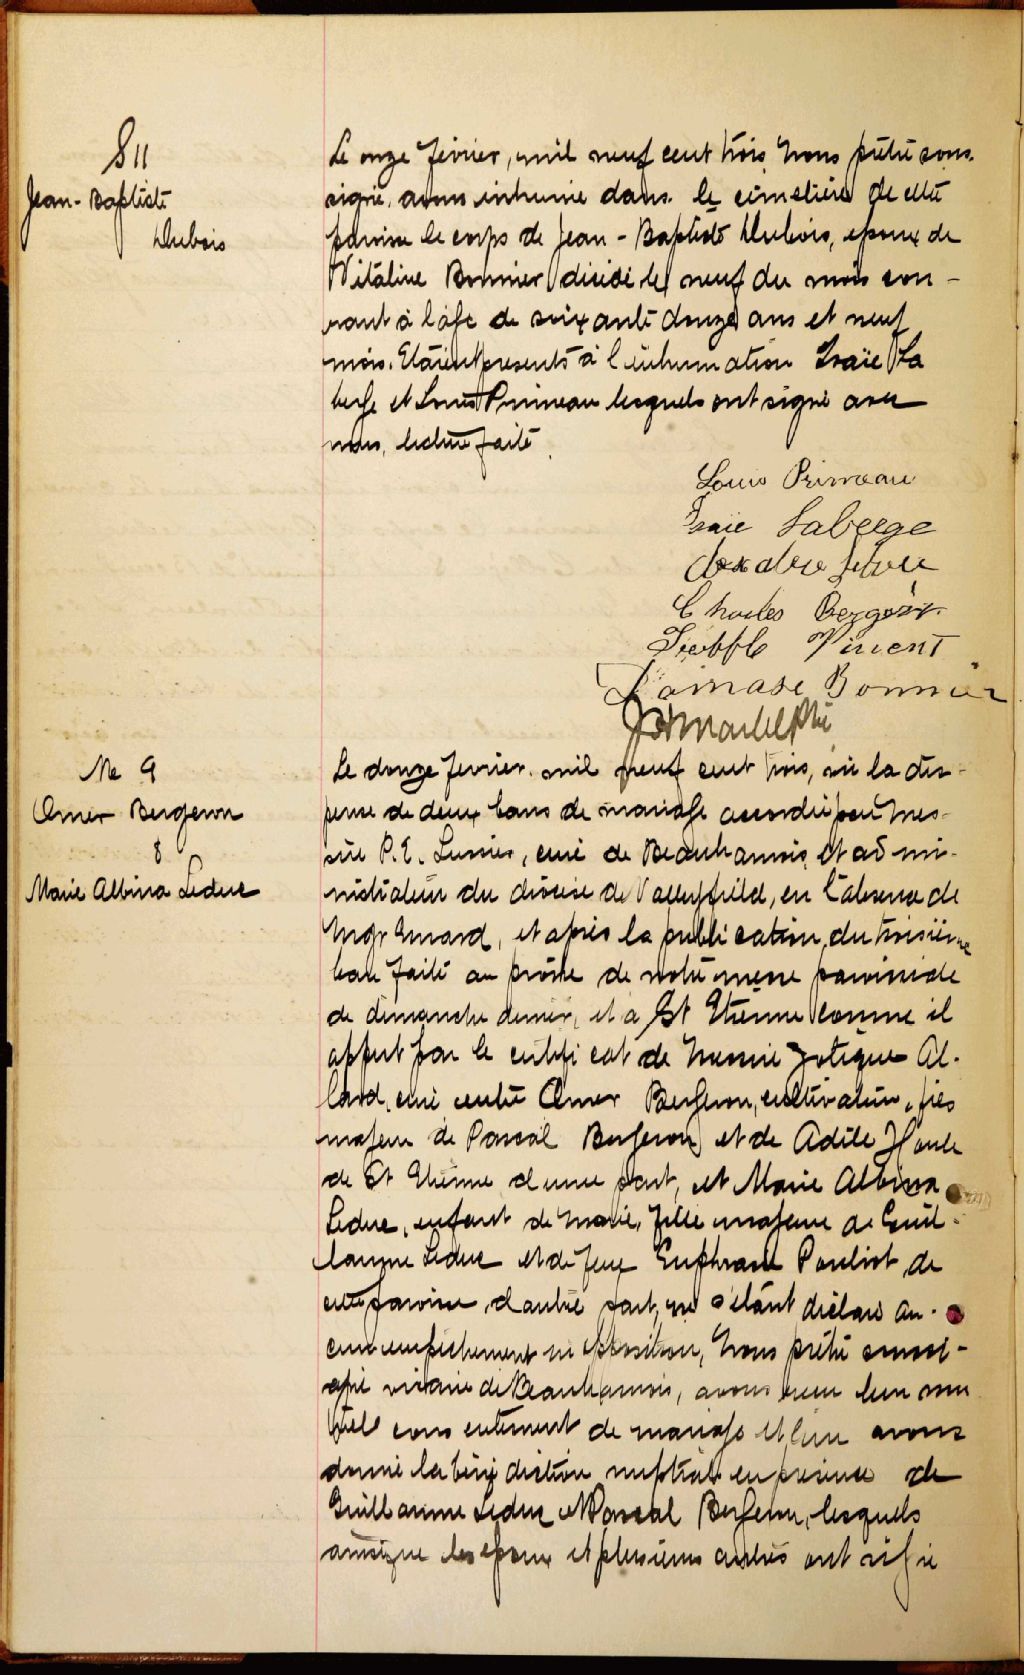 S 11
Jean-Baptiste
Dubois
Le onze février, mil neuf cent trois, Nous prêtre sous-
signé, avons inhumé dans le cimetière de cette
paroisse le corps de Jean-Baptiste Dubois, époux de
Vitaline Bonnier décédé le neuf du mois cou-
rant à l'âge de soixante douze ans et neuf
mois. Etaient présents à l'inhumation Isaïe La
berge et Louis Primeau lesquels ont signé avec
nous, lecture faite.
Louis Primeau
Isaïe Laberge
Charles Bergevin
Treffle Vincent
Damase Bonnier
Me 9
Omer Bergeron
&
Marie Albina Leduc
Le douze février mil neuf cent trois, vu la dis-
pense de deux bans de mariage accordée par Mes-
sire P. E. Lussier, curé de Beauharnois, et admi-
nistrateur du diocèse de Valleyfield, en l'absence de
Mgr Emard, et après la publication du troisième
ban faite au prône de notre messe paroissiale
de dimanche dernier, et à St Etienne comme il
appert par le certificat de Messire Zotique Al-
lard, curé entre Omer Bergeron, cultivateur, fils
majeur de Pascal Bergeron et de Adèle Houle
de St Etienne d'une part, et Marie Albina
Leduc, enfant de Marie, fille majeure de Guil-
laume Leduc et de feue Euphrasie Pouliot, de
cette paroisse, d'autre part, ne s'étant déclaré au-
cun empêchement ni opposition, Nous prêtre soussi-
gné vicaire de Beauharnois, avons reçu leur mu
tuel consentement de mariage et leur avons
donné la bénédiction nuptiale en présence de
Guillaume Leduc et Pascal Bergeron, lesquels
ainsi que les époux et plusieurs autres ont signé